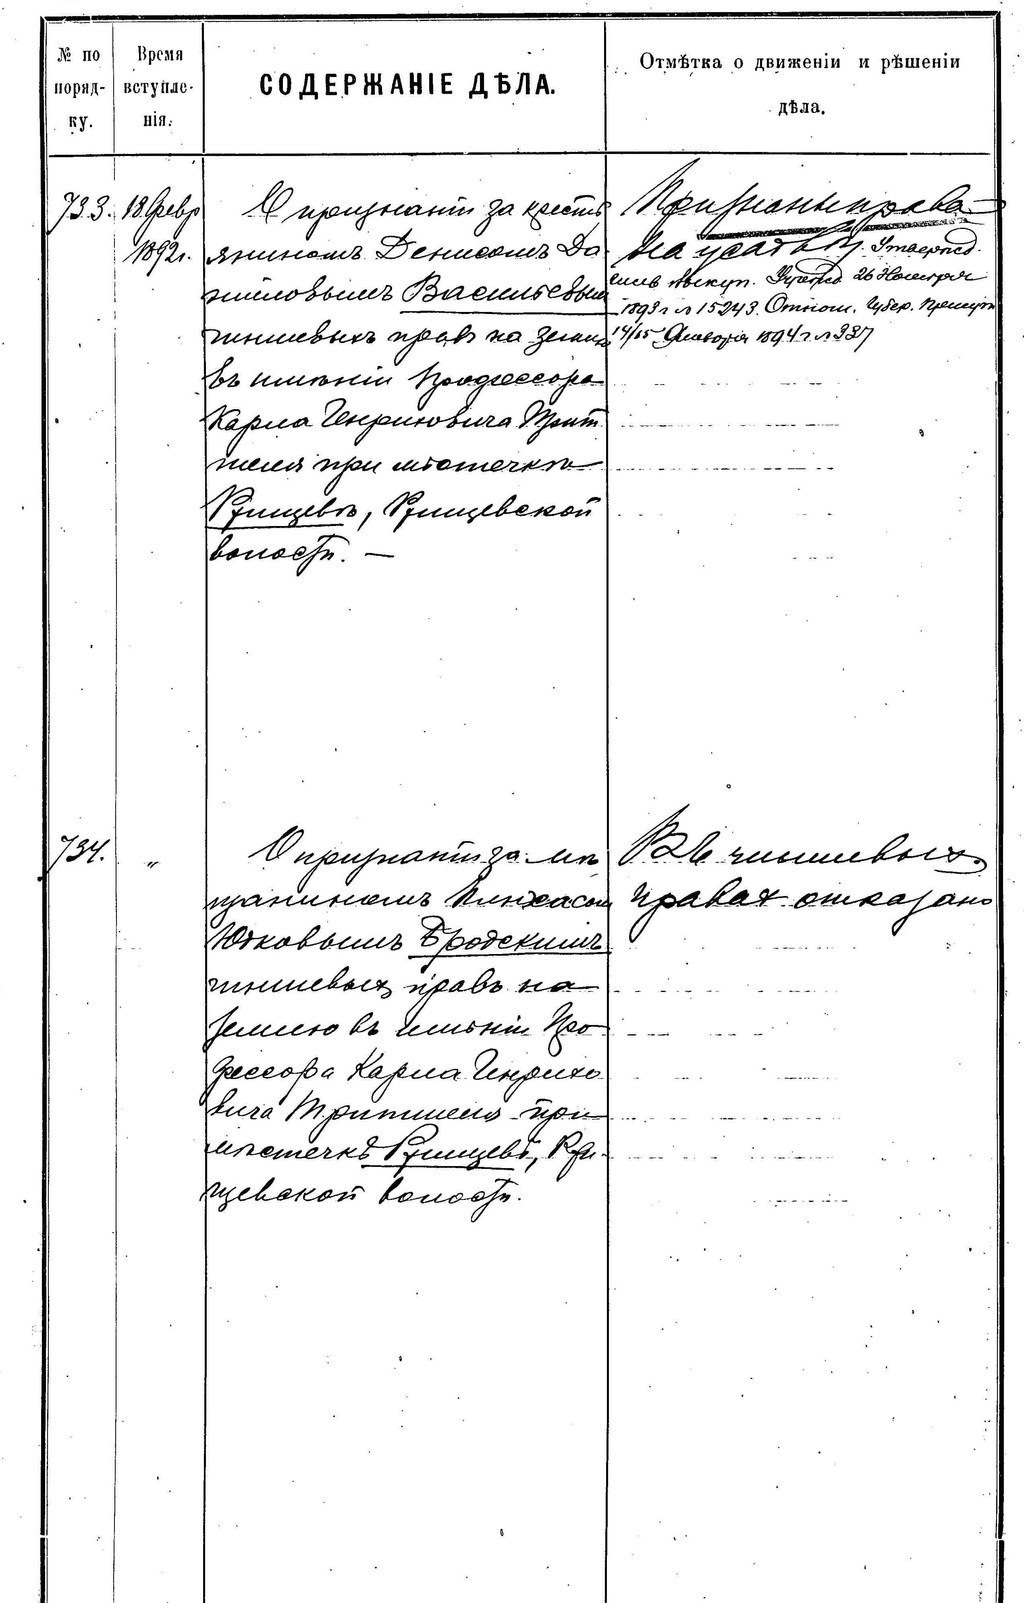 № по поряд- ку.
Время вступле- нія.
СОДЕРЖАНІЕ ДѢЛА.
Отмѣтка о движеніи и рѣшеніи
дѣла.
733.
18 Февр
1892 г.
О признаніи за кресть
яниномъ Денисомъ Да
ниловымъ Васильевым
чиншевыхъ правъ на землю
въ имѣніи Профессора
Карла Генриховича Трит
шеля при мѣстечкѣ
Ржищевѣ, Ржищевской
волости. —
Признаны права
на усадьбу. Утвержд.
выкуп. 26 Ноября
1893 г. № 15243. Отнош. Губер. Присут
14/15 Января 1894 г. № 337
734.
„
О признаніи за мѣ
щаниномъ Пинхасом
Юдковымъ Бродскимъ
чиншевыхъ правъ на
землю въ имѣніи Про
фессора Карла Генрихо
вича Тритшеля при
мѣстечкѣ Ржищевѣ, Ржи-
щевской волости.
Въ чиншевыхъ
правах отказано